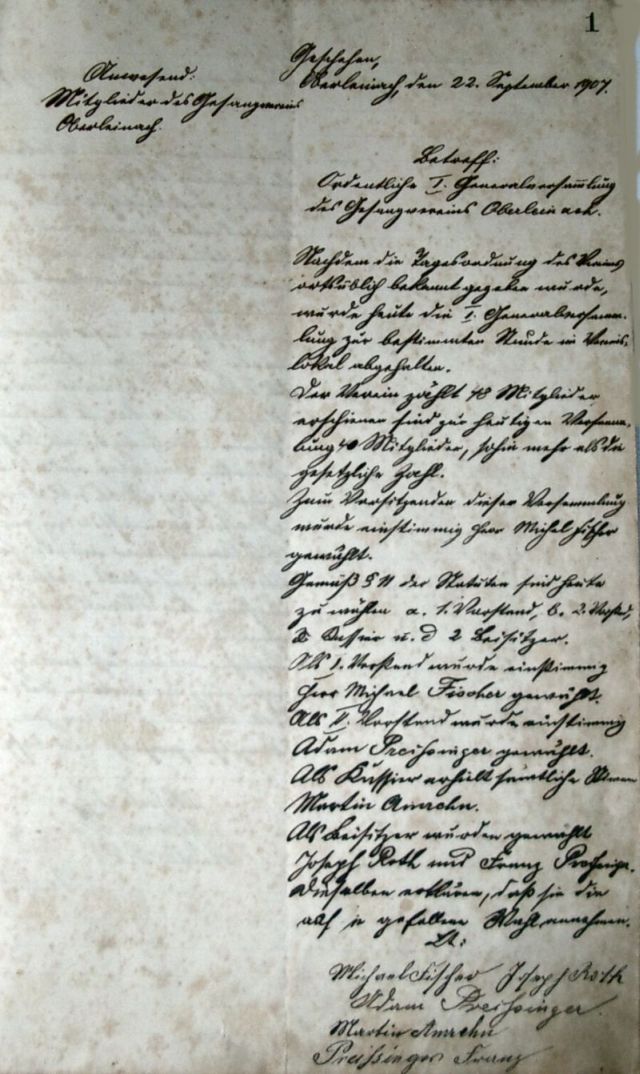 1
Geschehen,
Oberleinach, den 22. September 1907.
Anwesend:
Mitglieder des Gesangvereins
Oberleinach.
Betreff:
Ordentliche I. Generalversammlung
des Gesangvereins Oberleinach.
Nachdem die Tagesordnung des Vereins
ortsüblich bekannt gegeben wurde,
wurde heute die I. Generalversamm-
lung zur bestimmten Stunde im Vereins-
lokal abgehalten.
Der Verein zählt 48 Mitglieder
erschienen sind zur heutigen Versamm-
lung 40 Mitglieder, sohin mehr als die
gesetzliche Zahl.
Zum Vorsitzenden dieser Versammlung
wurde einstimmig Herr Michel Fischer
gewählt.
Gemäß § 11 der Statuten sind heute
zu wählen a. 1. Vorstand, b. 2. Vorstd,
Kassier u. d 2 Beisitzer.
Als I. Vorstand wurde einstimmig
Herr Michael Fischer gewählt.
Als II. Vorstand wurde einstimmig
Adam Preisinger gewählt.
Als Kassier erhielt sämtliche Stimmen
Martin Amrehn.
Als Beisitzer wurden gewählt
Joseph Roth und Franz Preisinger.
Dieselben erklären, daß sie die
auf sie gefallene Wahl annehmen.
Michael Fischer Joseph Roth
Adam Preisinger.
Martin Amrehn
Preissinger Franz